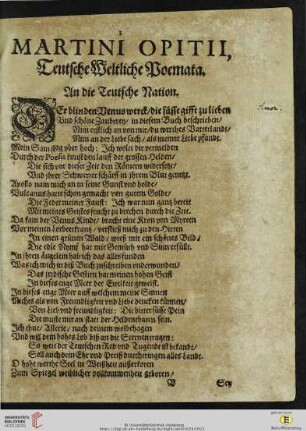 MARTINI OPITII,
Teutsche Weltliche Poemata.
An die Teutsche Nation.
DEr blinden Venus werck/ die süsse gifft zu lieben
Und schöne Zauberey/ in diesem Buch beschrieben/
Nim erstlich an von mir/ du werthes Vatterlandt/
Nim an der Liebe sach/ als meiner Liebe pfande.
Mein Sinn flog ober hoch: Ich wolte dir vermelden
Durch der Poesis kunst den lauff der grossen Helden/
Die sich vor dieser Zeit den Römern widersetzt/
Und ihre Schwerter scharff in ihrem Blut genetzt.
Apollo nam mich an zu seine Gunst und holde/
Vulcanus hatte schon gemacht von gutem Golde/
Die Feder meiner Faust: Ich war nun gantz bereit
Mit meines Geistes frucht zu brechen durch die Zeit.
Da kam der Venus Kindt/ bracht eine Kron von Myrten
Vor meinen Lorbeerkrantz/ verstieß mich zu den Hirten
In einen grünen Wald/ wieß mir ein schönes Bild/
Die edle Nimf hat mir Gemüth und Sinn erfült.
In ihren äugelein hab ich das alles funden
Was ich mich in diß Buch zuschreiben underwunden/
Das irrdische Gestirn hat meinen hohen Geist
In dieses enge Meer der Eitelkeit geweist.
In dieses enge Meer auß welchem meine Sinnen
Nichts als von Freundligkeit und Liebe dencken können/
Von Lieb und freundligkeit: Die bitter süsse Pein
Die muste mir an statt der Heldenthaten sein.
Ich thu/ Asterie/ nach deinem wolbehagen
Und wil dein hohes Lob biß an das Sternen tragen:
So weit der Teutschen Red und Tugendt ist bekandt/
Soll auch dein Ehr und Preiß durchtringen alles Landt.
O hohe werthe Seel in Weißheit außerkoren
Zum Spiegel weiblicher vollkommenheit geboren/
Sey